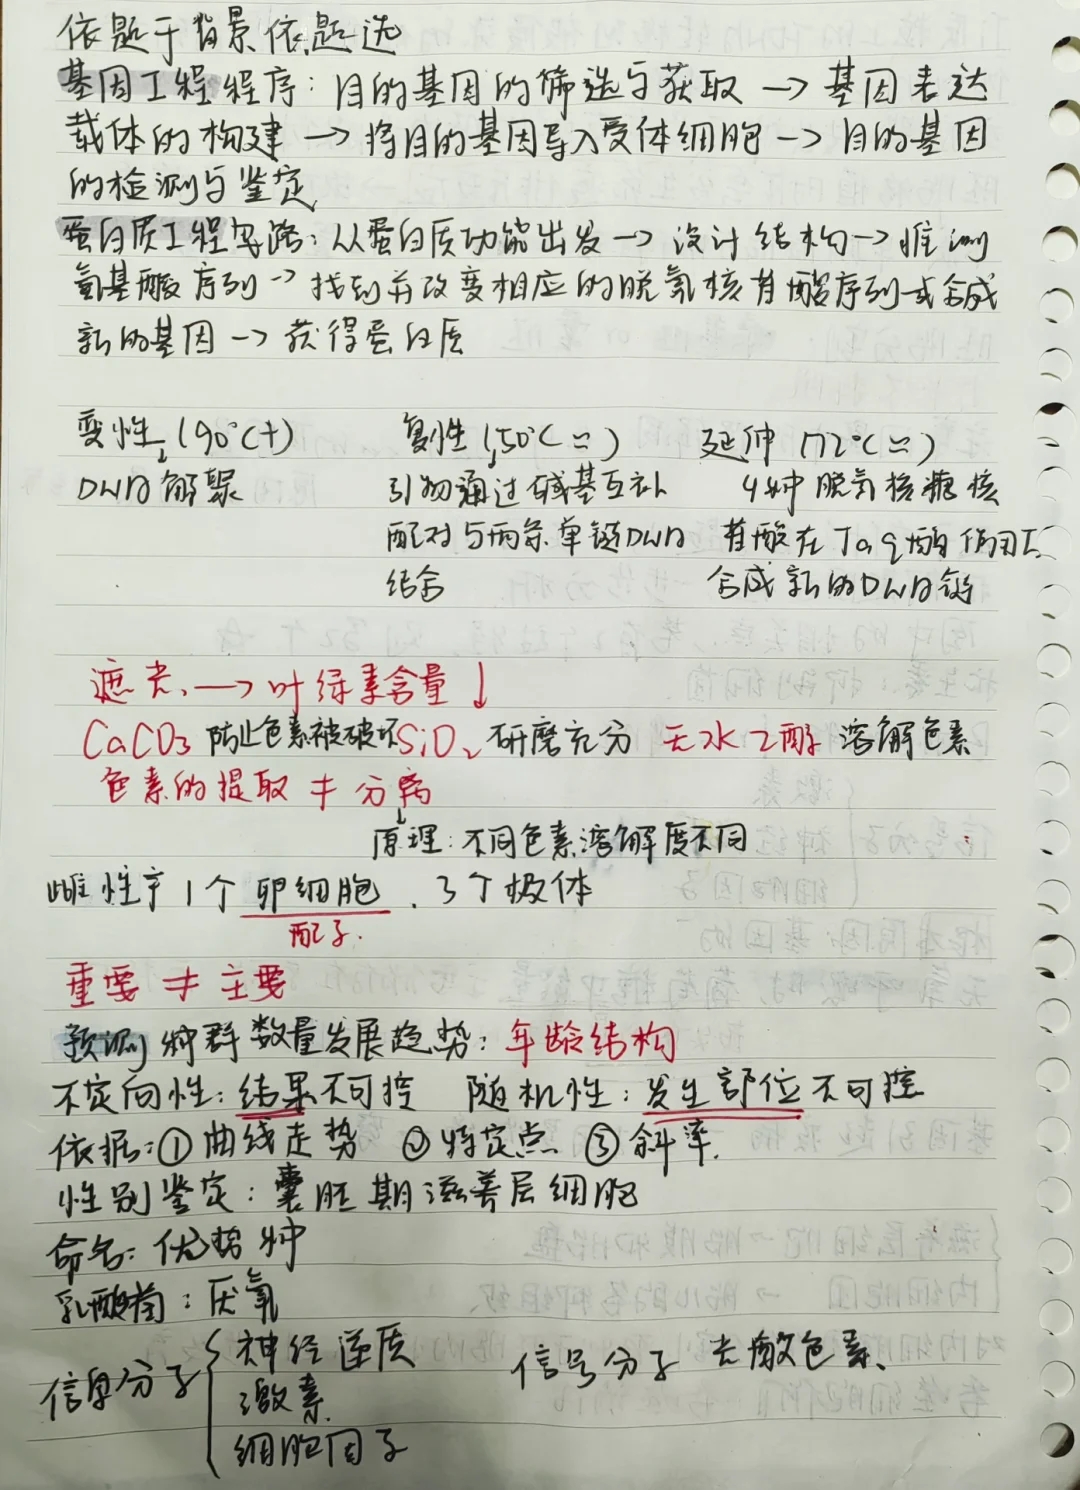 依题干背景依题选
基因工程程序：目的基因的筛选与获取→基因表达
载体的构建→将目的基因导入受体细胞→目的基因
的检测与鉴定
蛋白质工程思路：从蛋白质功能出发→设计结构→推测
氨基酸序列→找到并改变相应的脱氧核苷酸序列或合成
新的基因→获得蛋白质
变性（90℃+） 复性（50℃ 延伸（72℃
↓
DNA解聚 引物通过碱基互补 4种脱氧核糖核
配对与两条单链DNA 苷酸在Taq酶作用下
结合 合成新的DNA链
遮光→叶绿素含量↓
CaCO3防止色素被破坏 SiO2研磨充分 无水乙醇 溶解色素
色素的提取≠分离
↓
原理：不同色素溶解度不同
雌性产1个卵细胞、3个极体
配子.
重要≠主要
预测种群数量发展趋势：年龄结构
不定向性：结果不可控 随机性：发生部位不可控
依据：①曲线走势 ②特定点 ③斜率.
性别鉴定：囊胚期滋养层细胞
命名：优势种
乳酸菌：厌氧
神经递质
信息分子{ 激素 信号分子 光敏色素、
细胞因子